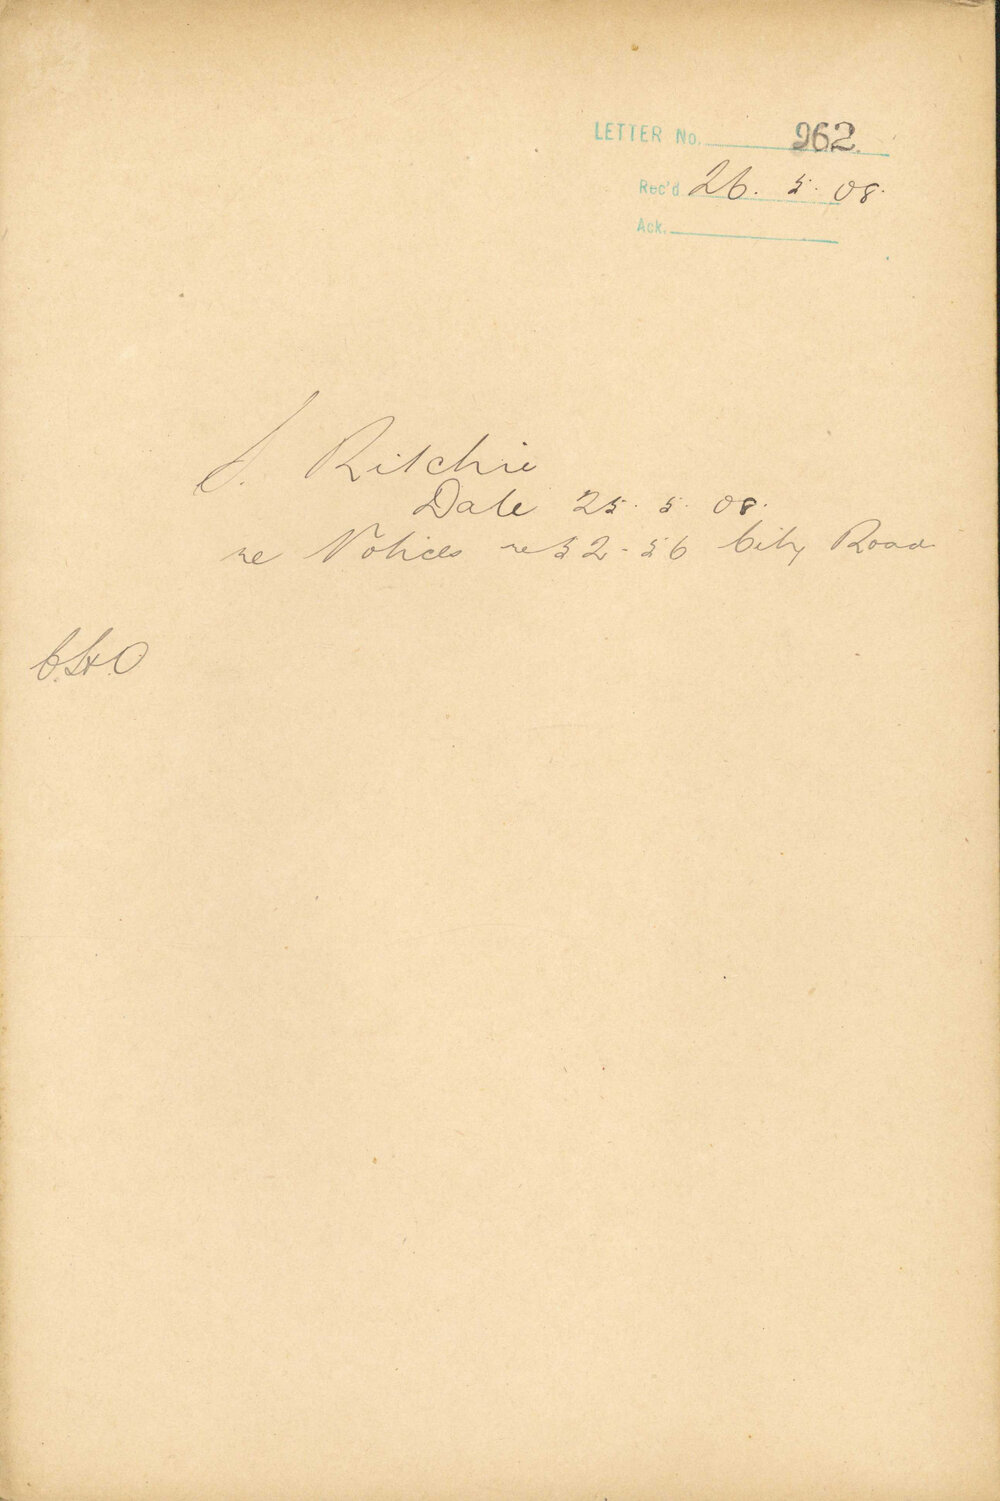 LETTER No. 962.
Rec'd 26. 5. 08.
Ack.
J. Ritchie
Date 25. 5. 08.
re Notices re 52-56 City Road
C.H.O